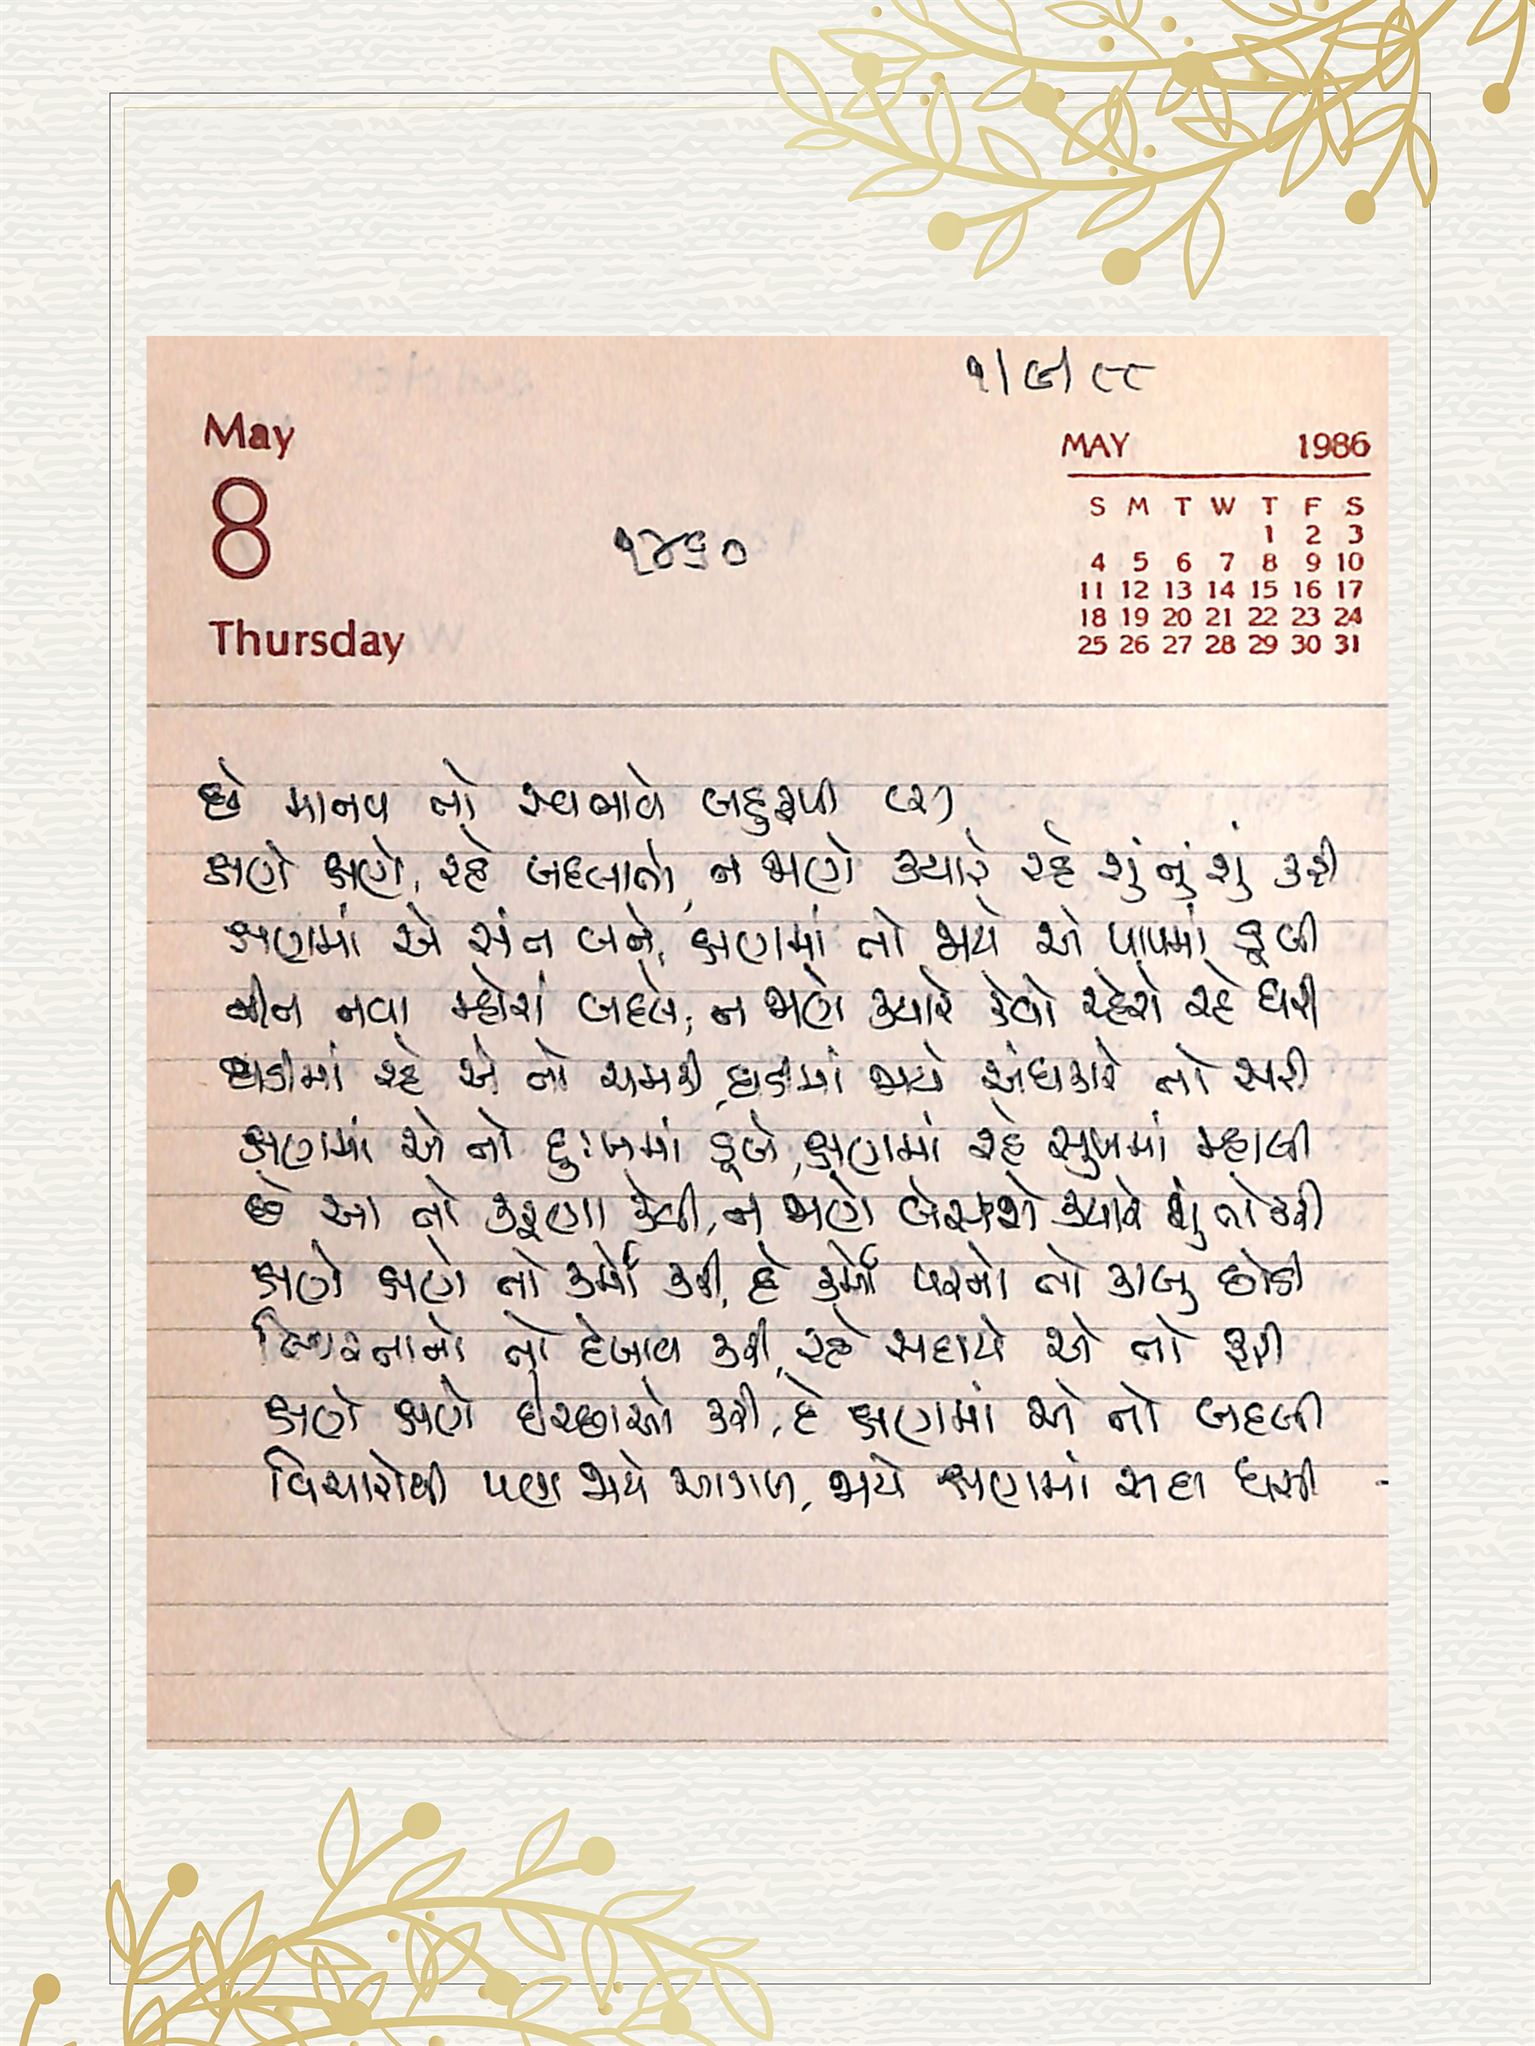 ૧/૭/૮૮
May
MAY 1986
8
S M T W T F S
1 2 3
4 5 6 7 8 9 10
11 12 13 14 15 16 17
18 19 20 21 22 23 24
25 26 27 28 29 30 31
૧૪૬૦
Thursday
છે માનવ તો સ્વભાવે બહુરૂપી (૨)
ક્ષણે ક્ષણે, રહે બદલાતો, ન જાણે ક્યારે રહે શું નું શું કરી
ક્ષણમાં એ સંત બને, ક્ષણમાં તો જાયે એ પાપમાં ડૂબી
નીત નવા મ્હોરાં બદલે, ન જાણે ક્યારે કેવો ચ્હેરો રહે ધરી
ઘડીમાં રહે એ તો ચમકી, ઘડીમાં જાયે અંધકારે તો સરી
ક્ષણમાં એ તો દુઃખમાં ડૂબે, ક્ષણમાં રહે સુખમાં મ્હાલી
છે આ તો કરૂણા કેવી, ન જાણે બેસશે ક્યારે શું તો કરી
ક્ષણે ક્ષણે તો કર્મો કરી, દે કર્મો પરનો તો કાબુ છોડી
સ્થિરતાનો તો દેખાવ કરી, રહે સદાયે એ તો ફરી
ક્ષણે ક્ષણે ઇચ્છાઓ કરી, દે ક્ષણમાં એ તો બદલી
વિચારોથી પણ જાયે આગળ, જાયે ક્ષણમાં સદા ધસી